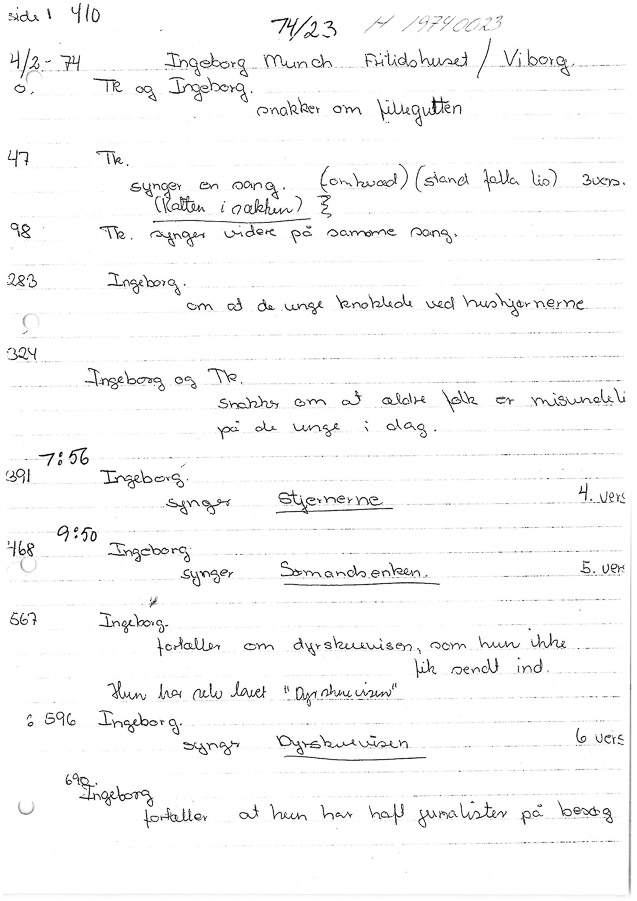 side 1 410
74/23 H 19740023
4/2-74 Ingeborg Munch Fritidshuset / Viborg.
0. Tk og Ingeborg.
snakker om fillegutten
47 Tk.
synger en sang. (omkvæd) (stand falla lio) 3 vers.
(Katten i sækken)
98 Tk. synger videre på samme sang.
283 Ingeborg.
om at de unge knoklede ved hushjørnerne
324
Ingeborg og Tk.
snakker om at ældre folk er misundeli
på de unge i dag.
7:56
391 Ingeborg.
synger Stjernerne 4. vers
9:50
468 Ingeborg
synger Sømandsenken. 5. ver
567 Ingeborg.
fortæller om dyrskuevisen, som hun ikke
fik sendt ind.
Hun har selv lavet "Dyrskuevisen"
: 596 Ingeborg.
synger Dyrskuevisen 6 vers
690.
Ingeborg
fortæller at hun har haft jurnalister på besøg